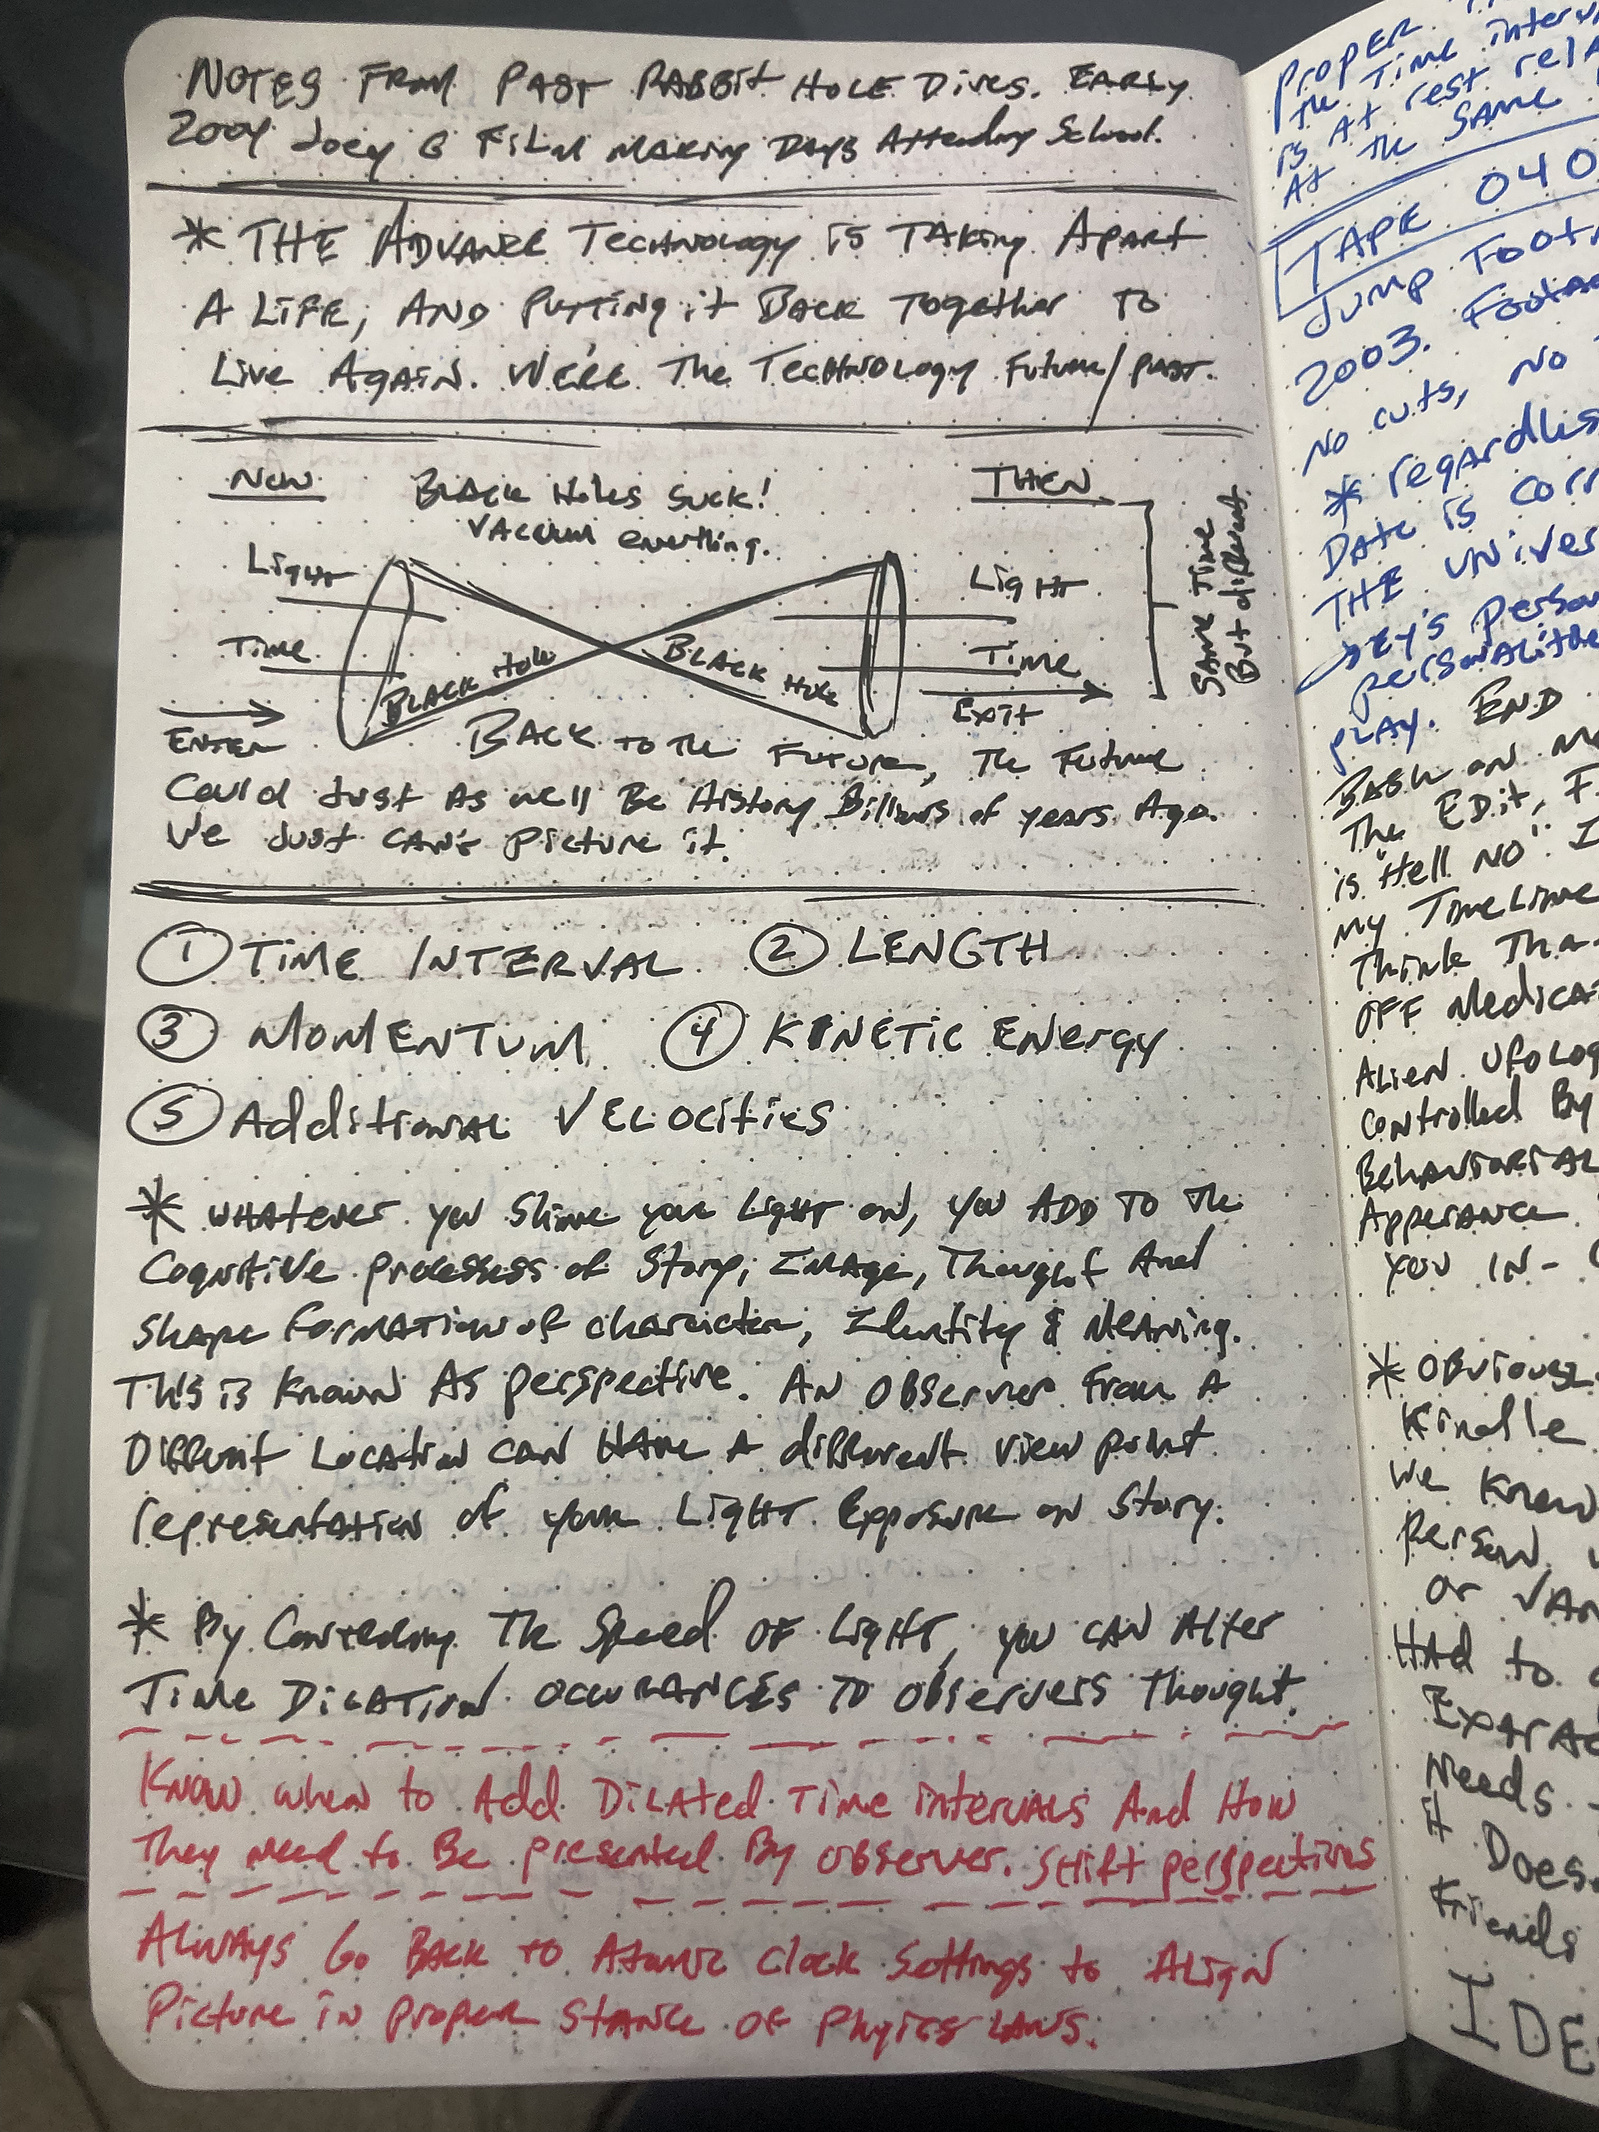 NOTES FROM PAST RABBIT HOLE DIVES. EARLY
2004 Joey G FiLM MAKING DAYS Attending School.
* THE ADVANCE TECHNOLOGY is TAKING APART
A LIFE, AND PUTTING it BACK TOGETHER TO
Live AGAIN. WE'RE THE TECHNOLOGY FUTURE/PAST.
NOW
BLACK HOLES SUCK!
VACUUM everything.
THEN
Light
Time
ENTER
BLACK HOLE
BLACK HOLE
Light
Time
EXIT
SAME TIME
But different.
BACK to the FUTURE, The Future
Could Just As well Be History Billions of years Ago.
We Just CAN'T Picture it.
① TIME INTERVAL ② LENGTH
③ MOMENTUM ④ KINETIC ENERGY
⑤ Additional VELOCITIES
* WHATEVER you Shine your Light on, you ADD TO The
Cognitive processess of Story, IMAGE, Thought And
Shape FORMATION of character, Identity & Meaning.
This is Known As perspective. AN OBSERVER From A
Different Location CAN HAVE A different view point
representation of your Light Exposure on Story.
* By Controlling The Speed OF Light, you CAN Alter
TIME DILATION OCCURANCES TO OBSERVERS Thought.
KNOW when to Add DiLATED Time intervals And How
They need to Be presented By OBSERVER. SHIFT perspectives
ALWAYS Go BACK TO Atomic Clock Settings to ALIGN
Picture in proper STANCE OF PHYICS LAWS.
PROPER
the Time
is At rest
At the SAME
TAPE 040
JUMP
2003.
No cuts, No
*
DATE is
THE
JOEY'S
PLAY. END
on
The EDit,
is "Hell NO". I
my TIMELINE
Think
OFF
ALIEN
Controlled By
you IN-
*
Kindle
We Knew
Person
or
HAD to
Needs
it
Friends